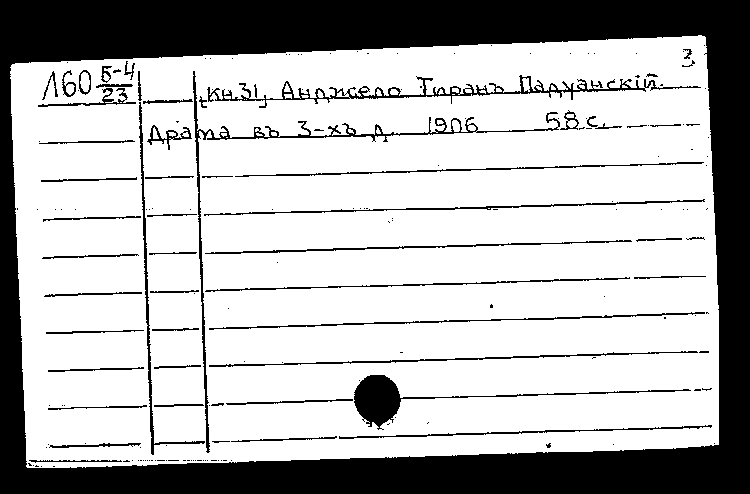 3
Л60 5-4/23
[Кн.31] Анджело Тиранъ Падуанскій.
Драма въ 3-хъ д. 1906 58 с.